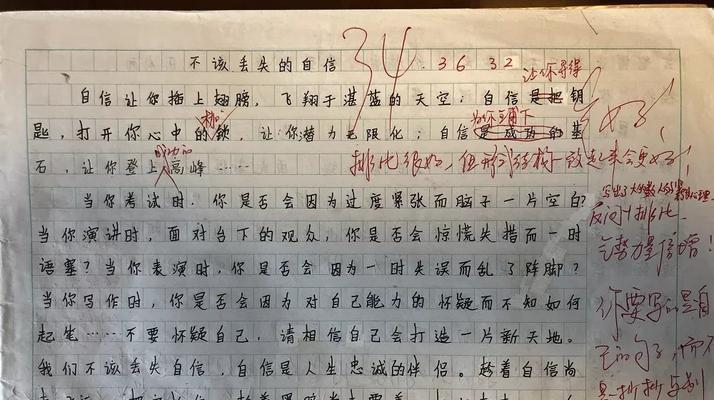 不该丢失的自信
34
36 32
让你寻得
自信让你插上翅膀，飞翔于湛蓝的天空；自信是把钥
匙，打开你心中的锁，让你潜力无限化；自信是成功的基
石，让你登上高峰……
成功的
排比很好，但形式结构一致起来会更好！
当你考试时，你是否会因为过度紧张而脑子一片空白？
当你演讲时，面对台下的观众，你是否会惊慌失措而一时
语塞？当你表演时，你是否会因为一时失误而乱了阵脚？
当你写作时，你是否会因为对自己能力的怀疑而不知如何
起笔……不要怀疑自己，请相信自己会打造一片新天地。
我们不该丢失自信，自信是人生忠诚的伴侣。趁着自信尚
写出了大多数人
心理。
反问排比
气势力量倍增！
你要写的是自
己的句子，而不